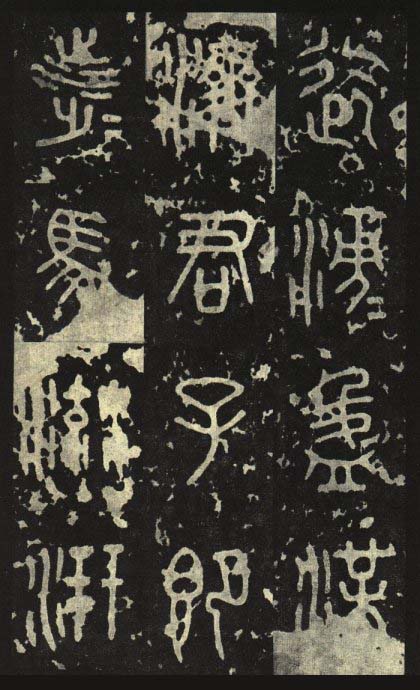 迄滂盈渫
濟君子即
涉馬流汧